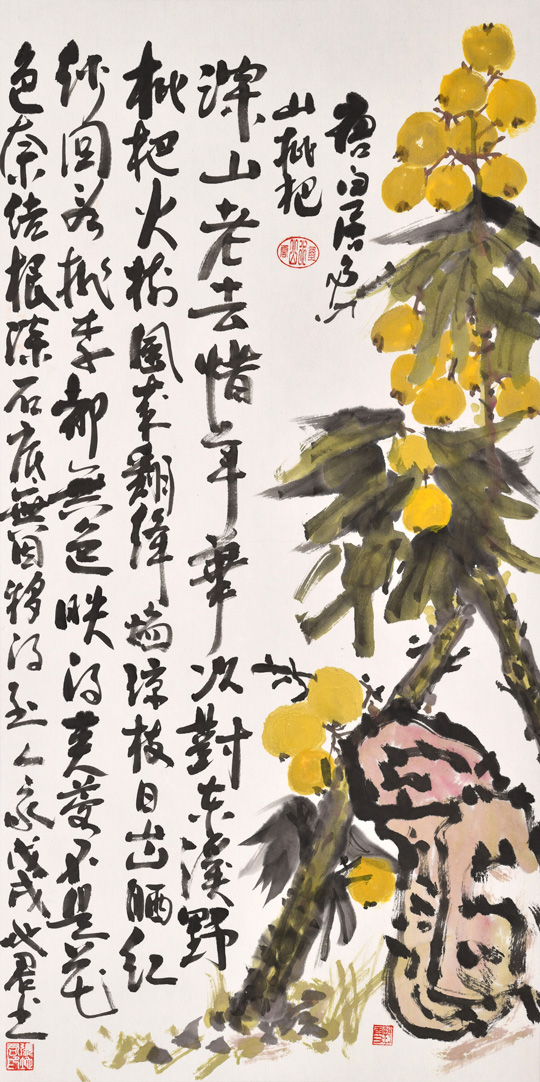 唐白居易
山枇杷
深山老去惜年華况對东溪野
枇杷火樹風来翻绛焰琼枝日出晒红
纱回看桃李都無色映得芙蓉不是花
争奈结根深石底無因移得到人家戊戌君书